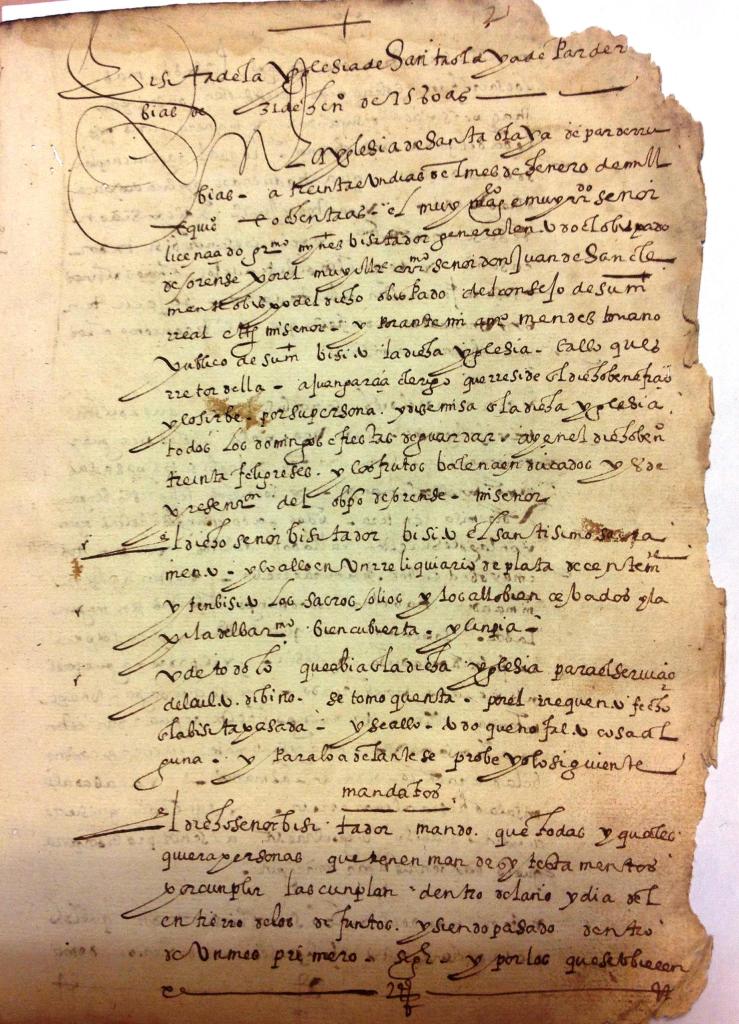 2
Visita de la yglesia de Santa olaya de Parder
bias de 31 de hen.º de 1580 as
En La yglesia de Santa olaya de parderru
bias - a treinta e un dias del mes de henero de mill
e qui.os e ochenta as - el muy e muy r.do señor
licenciado visitador general en todo el obispado
de orense por el muy ill.e señor don Juan de San cle
mente obispo del dicho obispado del consejo de su m
real mi señor - y por ante mi mendes notario
publico de su m bisito la dicha yglesia - hallo ques
rretor della - a juan garcia clerigo que rreside el dicho benefiçio
y lo sirbe - por su persona. y dize misa a la dicha yglesia
todos los domingos e fiestas de guardar - ay en el dicho ben.o
treinta feligreses. y los frutos balen çien ducados y es de
presen.on del obpo de orense - mi señor
El dicho señor bisitador bisito el santisimo sacra
mento - y lo allo en un rreliquiario de plata decentem.te
y tenbisito los sacros olios y los allo bien çerrados y la
pila del bau.mo bien cubierta - y linpia -
y de todo lo que abia en la dicha yglesia para el serviçio
del culto dibino - se tomo quenta - por el fecho
en la bisita pasada - y se allo todo que no falto cosa al
guna - y para lo adelante se probeyo lo siguiente
mandatos
El dicho señor bisitador mando. que todas y quales
quiera personas que tienen mandas y testamentos
por cunplir las cunplan dentro del año y dia del
entierro de los defuntos. y siendo pasado dentro
de un mes primero - y por los que estobieren